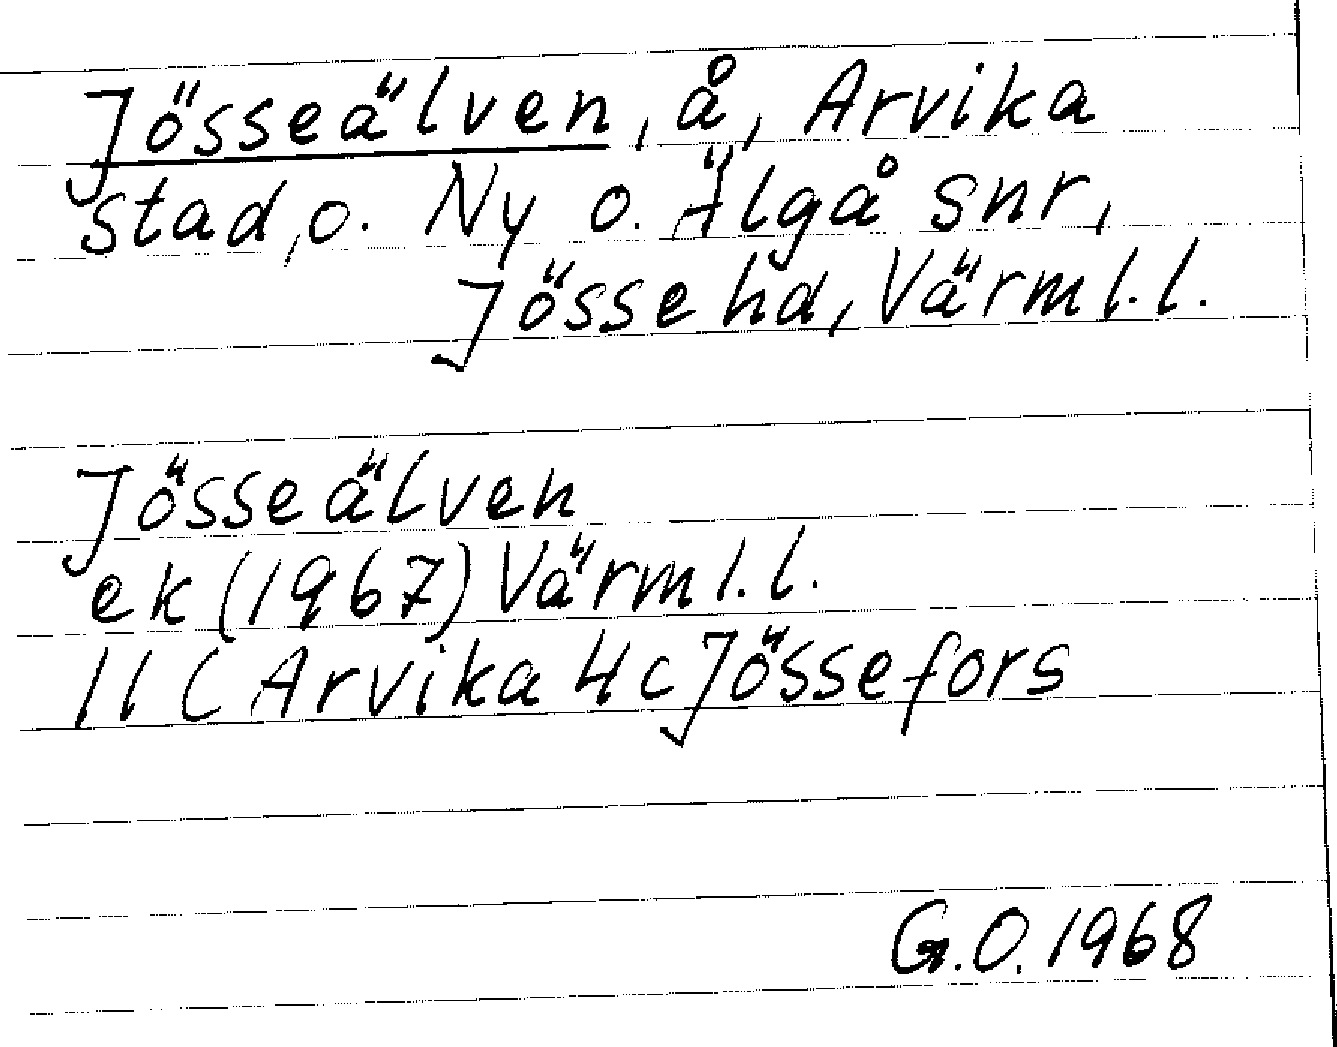 Jösseälven, å, Arvika
stad, o. Ny o. Älgå snr,
Jösse hd, Värml.l.
Jösseälven
ek (1967) Värml.l.
11 C Arvika 4c Jössefors
G.O. 1968